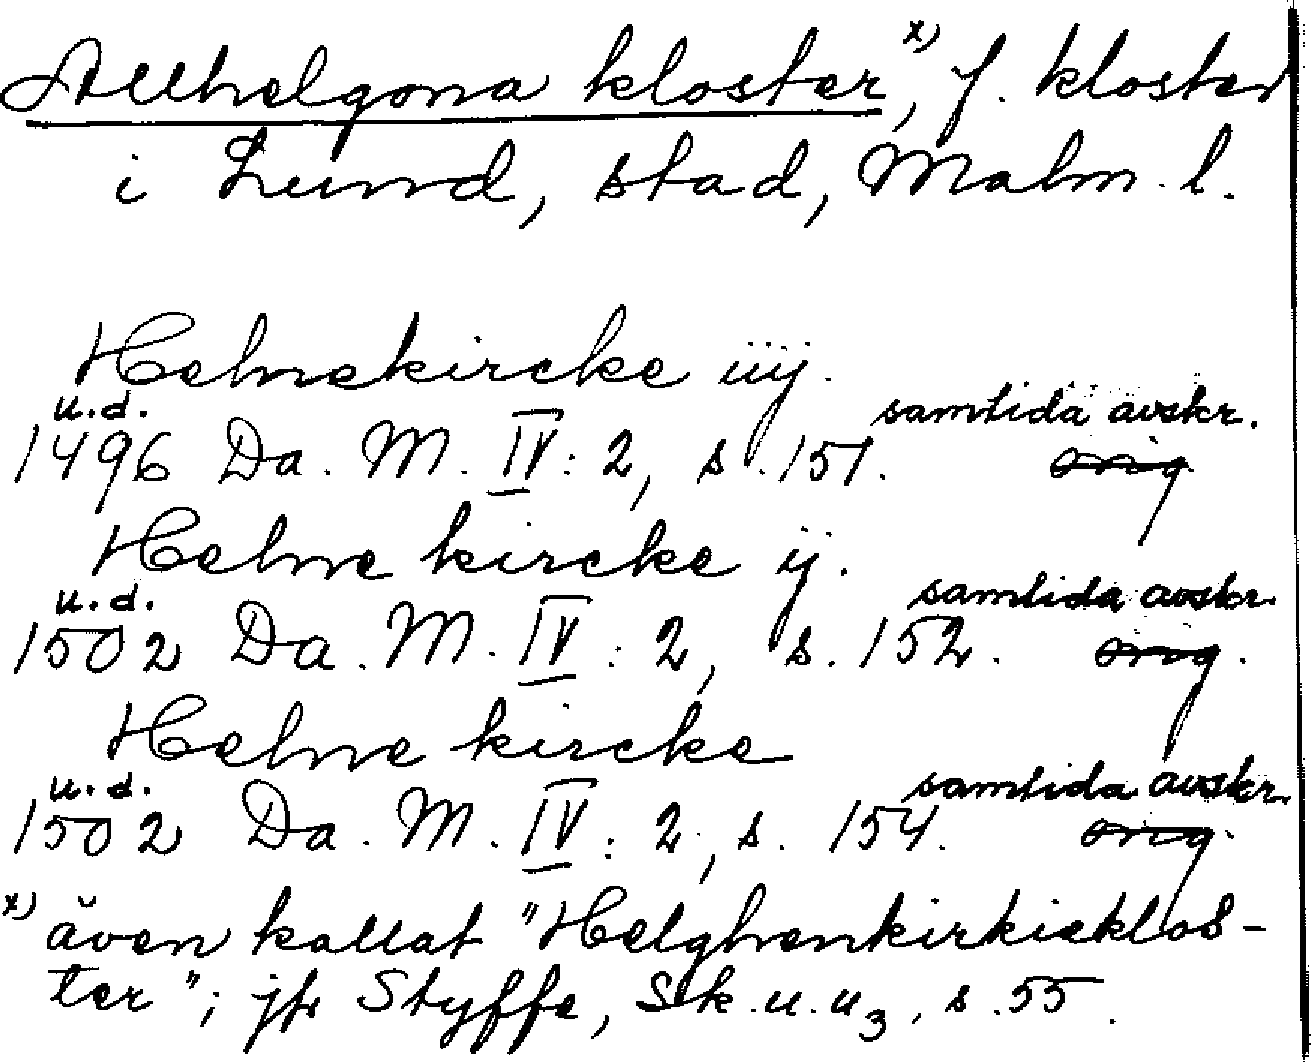 Allhelgona kloster,x) f. kloster
i Lund, stad, Malm. l.
Helnekircke iiij.
u.d. samtida avskr.
1496 Da. M. IV: 2, s. 151. orig
Helne kircke ij.
u.d. samtida avskr.
1502 Da. M. IV: 2, s. 152. orig.
Helne kircke
u.d. samtida avskr.
1502 Da. M. IV: 2, s. 154. orig.
x) även kallat "Helghenkirkieklos-
ter"; jfr Styffe, Sk.u.u3, s. 55.